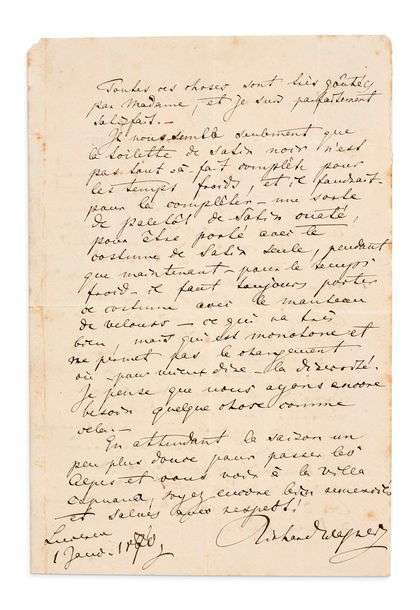 Toutes ces choses sont très goûtées
par Madame, et je suis parfaitement
satisfait. —
Il nous semble seulement que
la toilette de satin noir n'est
pas tout-à-fait complète pour
les temps froids, et il faudrait —
pour la compléter — une sorte
de paletôt de satin ouaté,
pour être porté avec le
costume de satin seule, pendant
que maintenant — pour le temps
froid — il faut toujours porter
ce costume avec le manteau
de velours — ce qui va très
bien, mais qui est monotone et
ne permet pas le changement
ou — pour mieux dire — la diversité.
Je pense que nous ayons encore
besoin quelque chose comme
cela. —
En attendant la saison un
peu plus douce pour passer les
Alpes et vous voir à la villa
soyez encore bien remerciés
et salués avec respect!
Richard Wagner
Lucerne
1 Janv. 1870